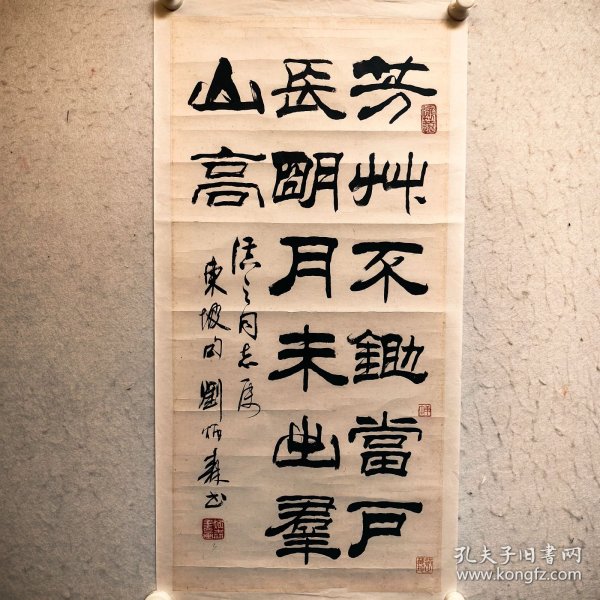 芳艸不鋤當戶
長朙月未出羣
山高
之同志属
東坡句 劉炳森书
孔夫子旧书网
www.kongfz.com